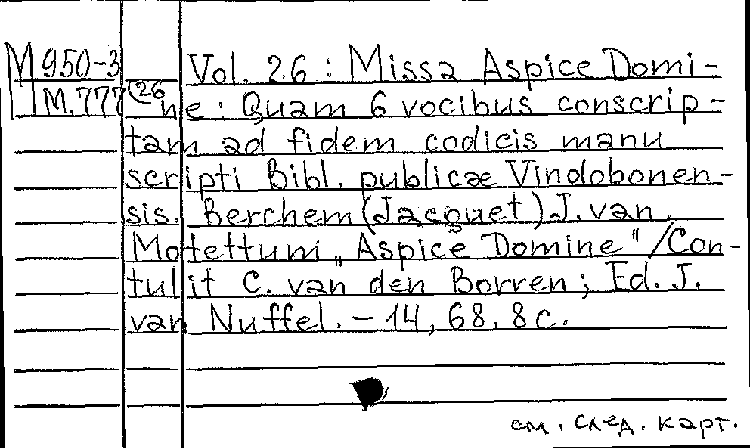 М950-3 Vol. 26 : Missa Aspice Domi-
М.777 (26 ne : Quam 6 vocibus conscrip-
tam ad fidem codicis manu
scripti Bibl. publicæ Vindobonen-
sis. Berchem (Jacquet) J. van.
Motettum „Aspice Domine“ / Con-
tulit C. van den Borren ; Ed. J.
van Nuffel. – 14, 68, 8 c.
см. след. карт.